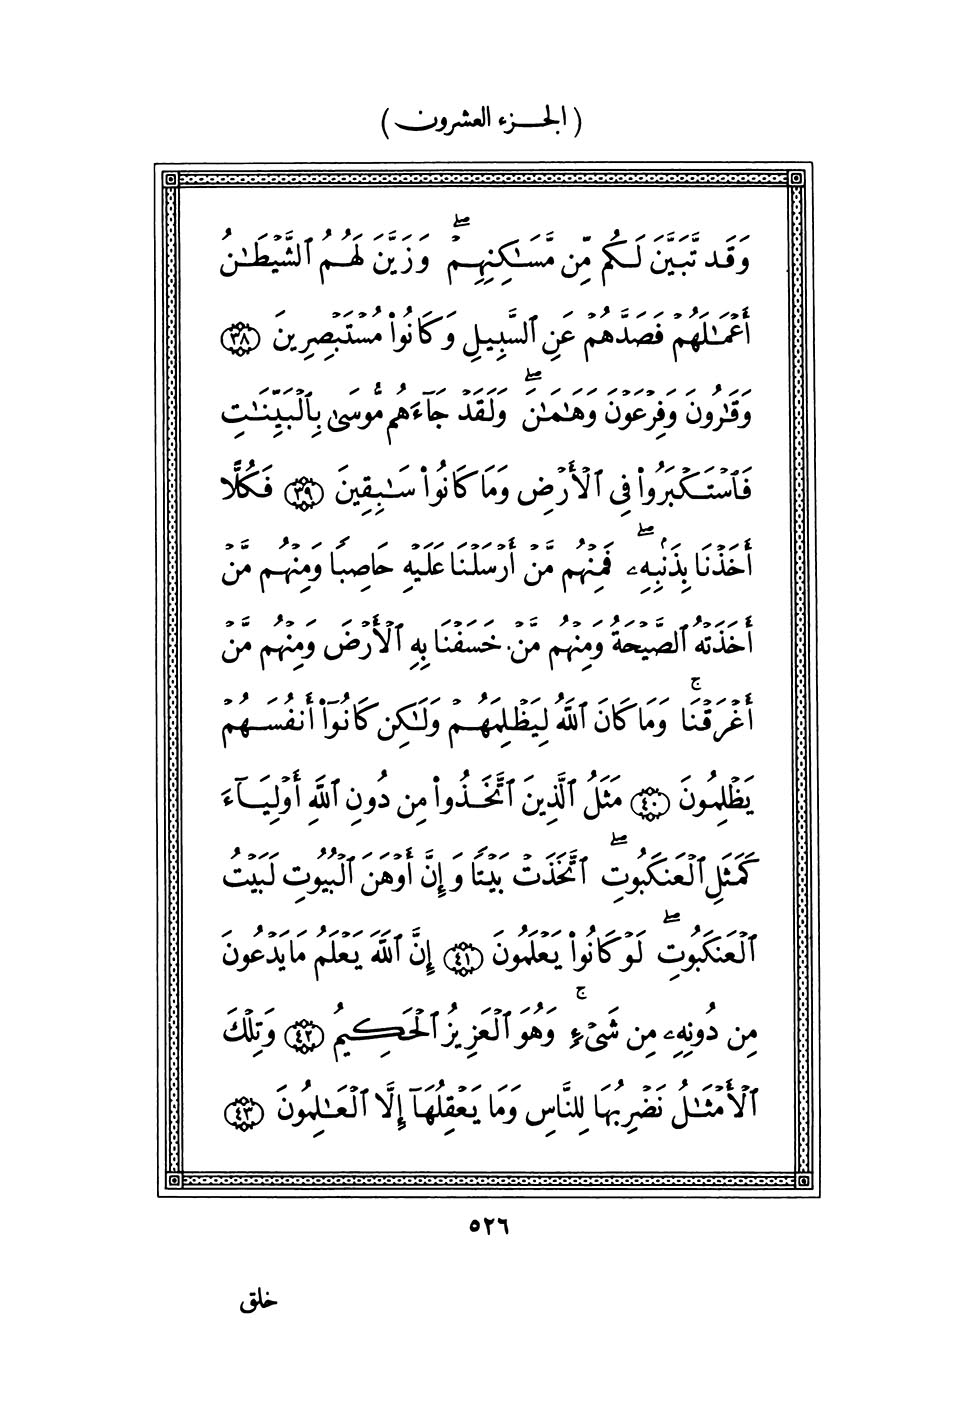 ( الجزء العشرون )
وَقَد تَّبَيَّنَ لَكُم مِّن مَّسَـٰكِنِهِمْ ۖ وَزَيَّنَ لَهُمُ ٱلشَّيْطَـٰنُ
أَعْمَـٰلَهُمْ فَصَدَّهُمْ عَنِ ٱلسَّبِيلِ وَكَانُوا۟ مُسْتَبْصِرِينَ ﴿٣٨﴾
وَقَـٰرُونَ وَفِرْعَوْنَ وَهَـٰمَـٰنَ ۖ وَلَقَدْ جَآءَهُم مُّوسَىٰ بِٱلْبَيِّنَـٰتِ
فَٱسْتَكْبَرُوا۟ فِى ٱلْأَرْضِ وَمَا كَانُوا۟ سَـٰبِقِينَ ﴿٣٩﴾ فَكُلًّا
أَخَذْنَا بِذَنۢبِهِۦ ۖ فَمِنْهُم مَّنْ أَرْسَلْنَا عَلَيْهِ حَاصِبًا وَمِنْهُم مَّنْ
أَخَذَتْهُ ٱلصَّيْحَةُ وَمِنْهُم مَّنْ خَسَفْنَا بِهِ ٱلْأَرْضَ وَمِنْهُم مَّنْ
أَغْرَقْنَا ۚ وَمَا كَانَ ٱللَّهُ لِيَظْلِمَهُمْ وَلَـٰكِن كَانُوٓا۟ أَنفُسَهُمْ
يَظْلِمُونَ ﴿٤٠﴾ مَثَلُ ٱلَّذِينَ ٱتَّخَذُوا۟ مِن دُونِ ٱللَّهِ أَوْلِيَآءَ
كَمَثَلِ ٱلْعَنكَبُوتِ ۖ ٱتَّخَذَتْ بَيْتًا وَإِنَّ أَوْهَنَ ٱلْبُيُوتِ لَبَيْتُ
ٱلْعَنكَبُوتِ ۖ لَوْ كَانُوا۟ يَعْلَمُونَ ﴿٤١﴾ إِنَّ ٱللَّهَ يَعْلَمُ مَا يَدْعُونَ
مِن دُونِهِۦ مِن شَىْءٍ ۚ وَهُوَ ٱلْعَزِيزُ ٱلْحَكِيمُ ﴿٤٢﴾ وَتِلْكَ
ٱلْأَمْثَـٰلُ نَضْرِبُهَا لِلنَّاسِ وَمَا يَعْقِلُهَآ إِلَّا ٱلْعَـٰلِمُونَ ﴿٤٣﴾
٥٢٦
خلق